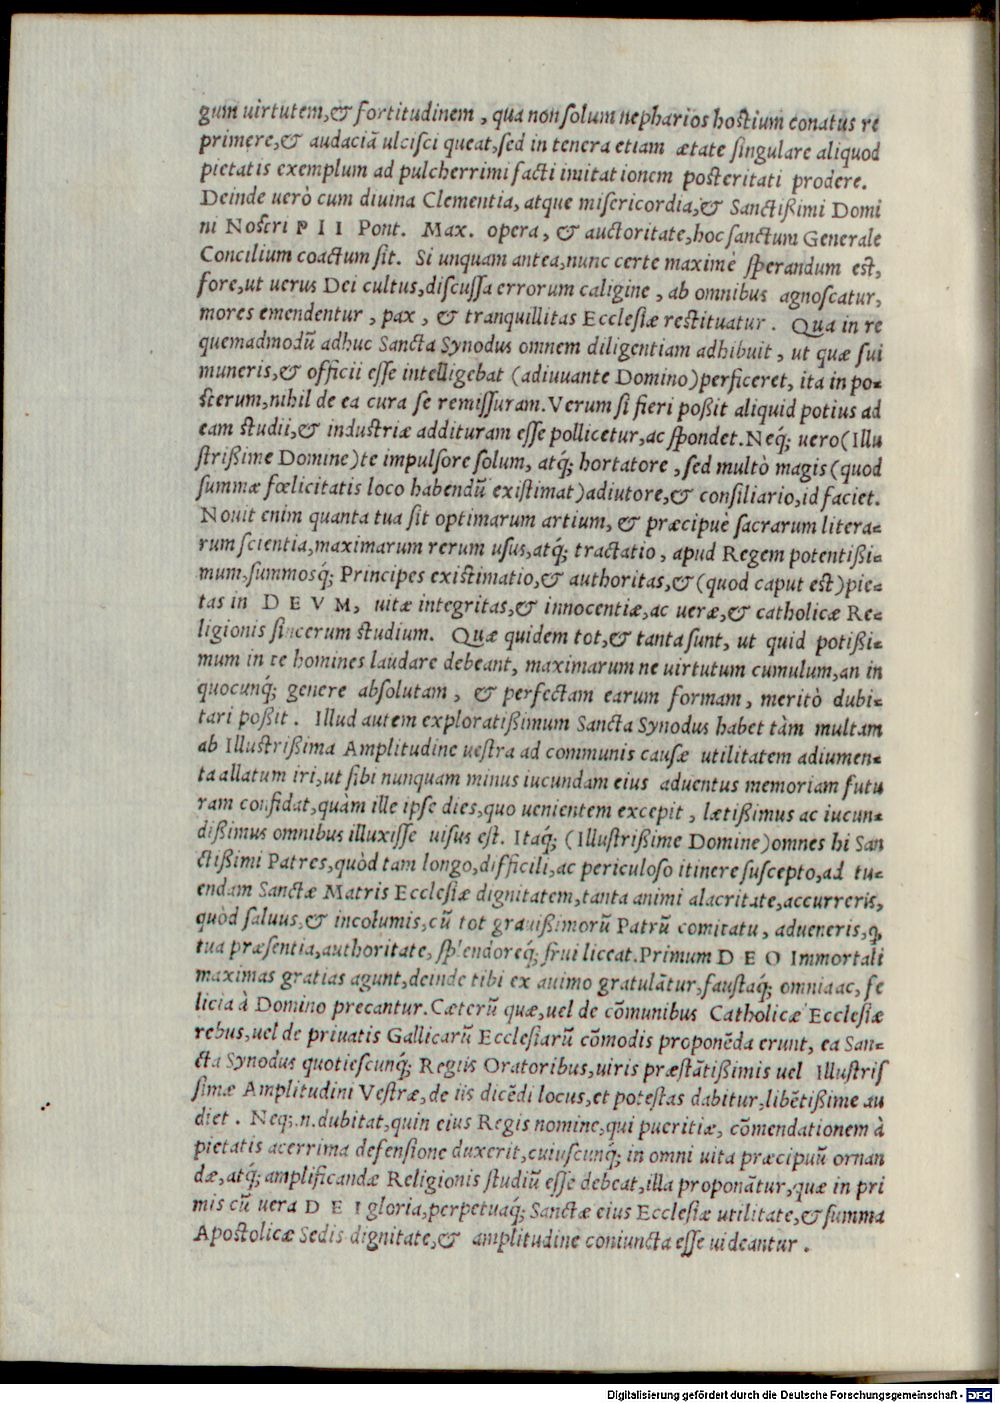 gum uirtutem,& fortitudinem , qua non ſolum nepharios hoſtium conatus re
primere,& audaciā ulciſci queat,ſed in tenera etiam ætate ſingulare aliquod
pietatis exemplum ad pulcherrimi facti imitationem poſteritati prodere.
Deinde uerò cum diuina Clementia, atque miſericordia,& Sanctißimi Domi
ni Noſtri P I I Pont. Max. opera, & auctoritate,hoc ſanctum Generale
Concilium coactum ſit. Si unquam antea,nunc certe maximè ſperandum eſt,
fore,ut uerus Dei cultus,diſcuſſa errorum caligine , ab omnibus agnoſcatur,
mores emendentur , pax , & tranquillitas Eccleſiæ reſtituatur . Qua in re
quemadmodū adhuc Sancta Synodus omnem diligentiam adhibuit , ut quæ ſui
muneris,& officii eſſe intelligebat (adiuuante Domino)perficeret, ita in po-
ſterum,nihil de ea cura ſe remiſſuram.Verum ſi fieri poßit aliquid potius ad
eam ſtudii,& induſtriæ addituram eſſe pollicetur,ac ſpondet.Neq́; uero(Illu
ſtrißime Domine)te impulſore ſolum, atq́; hortatore , ſed multò magis(quod
ſummæ fœlicitatis loco habendū exiſtimat)adiutore,& conſiliario,id faciet.
Nouit enim quanta tua ſit optimarum artium, & præcipuè ſacrarum litera-
rum ſcientia,maximarum rerum uſus,atq́; tractatio , apud Regem potentißi-
mum,ſummosq́; Principes exiſtimatio,& authoritas,&(quod caput eſt)pie-
tas in D E V M, uitæ integritas,& innocentiæ,ac ueræ,& catholicæ Re-
ligionis ſincerum ſtudium. Quæ quidem tot,& tanta ſunt, ut quid potißi-
mum in te homines laudare debeant, maximarum ne uirtutum cumulum,an in
quocunq́; genere abſolutam , & perfectam earum formam, meritò dubi-
tari poßit . Illud autem exploratißimum Sancta Synodus habet tàm multam
ab Illuſtrißima Amplitudine ueſtra ad communis cauſæ utilitatem adiumen-
ta allatum iri,ut ſibi nunquam minus iucundam eius aduentus memoriam futu
ram confidat,quàm ille ipſe dies,quo uenientem excepit , lætißimus ac iucun-
dißimus omnibus illuxiſſe uiſus eſt. Itaq́; (Illuſtrißime Domine)omnes hi San
ctißimi Patres,quòd tam longo,difficili,ac periculoſo itinere ſuſcepto,ad tu-
endam Sanctæ Matris Eccleſiæ dignitatem,tanta animi alacritate,accurreris,
quòd ſaluus,& incolumis,cū tot grauißimorū Patrū comitatu, adueneris,q̨
tua præſentia,authoritate, ſplendoreq́; frui liceat.Primum D E O Immortali
maximas gratias agunt,deinde tibi ex animo gratulātur,fauſtaq́; omnia ac, fe
licia à Domino precantur.Cæterū quæ,uel de cōmunibus Catholicæ Eccleſiæ
rebus,uel de priuatis Gallicarū Eccleſiarū cōmodis proponēda erunt, ea San-
cta Synodus quotieſcunq́; Regiis Oratoribus,uiris præſtātißimis uel Illuſtriſ
ſimæ Amplitudini Veſtræ,de iis dicēdi locus,et poteſtas dabitur,libētißime au
diet . Neq;.n.dubitat,quin eius Regis nomine,qui pueritiæ, cōmendationem à
pietatis acerrima defenſione duxerit,cuiuſcunq́; in omni uita præcipuū ornan
dæ,atq́; amplificandæ Religionis ſtudiū eſſe debeat,illa proponātur,quæ in pri
mis cū uera D E I gloria,perpetuaq́; Sanctæ eius Eccleſiæ utilitate,& ſumma
Apoſtolicæ Sedis dignitate,& amplitudine coniuncta eſſe uideantur .
Digitalisierung gefördert durch die Deutsche Forschungsgemeinschaft - DFG